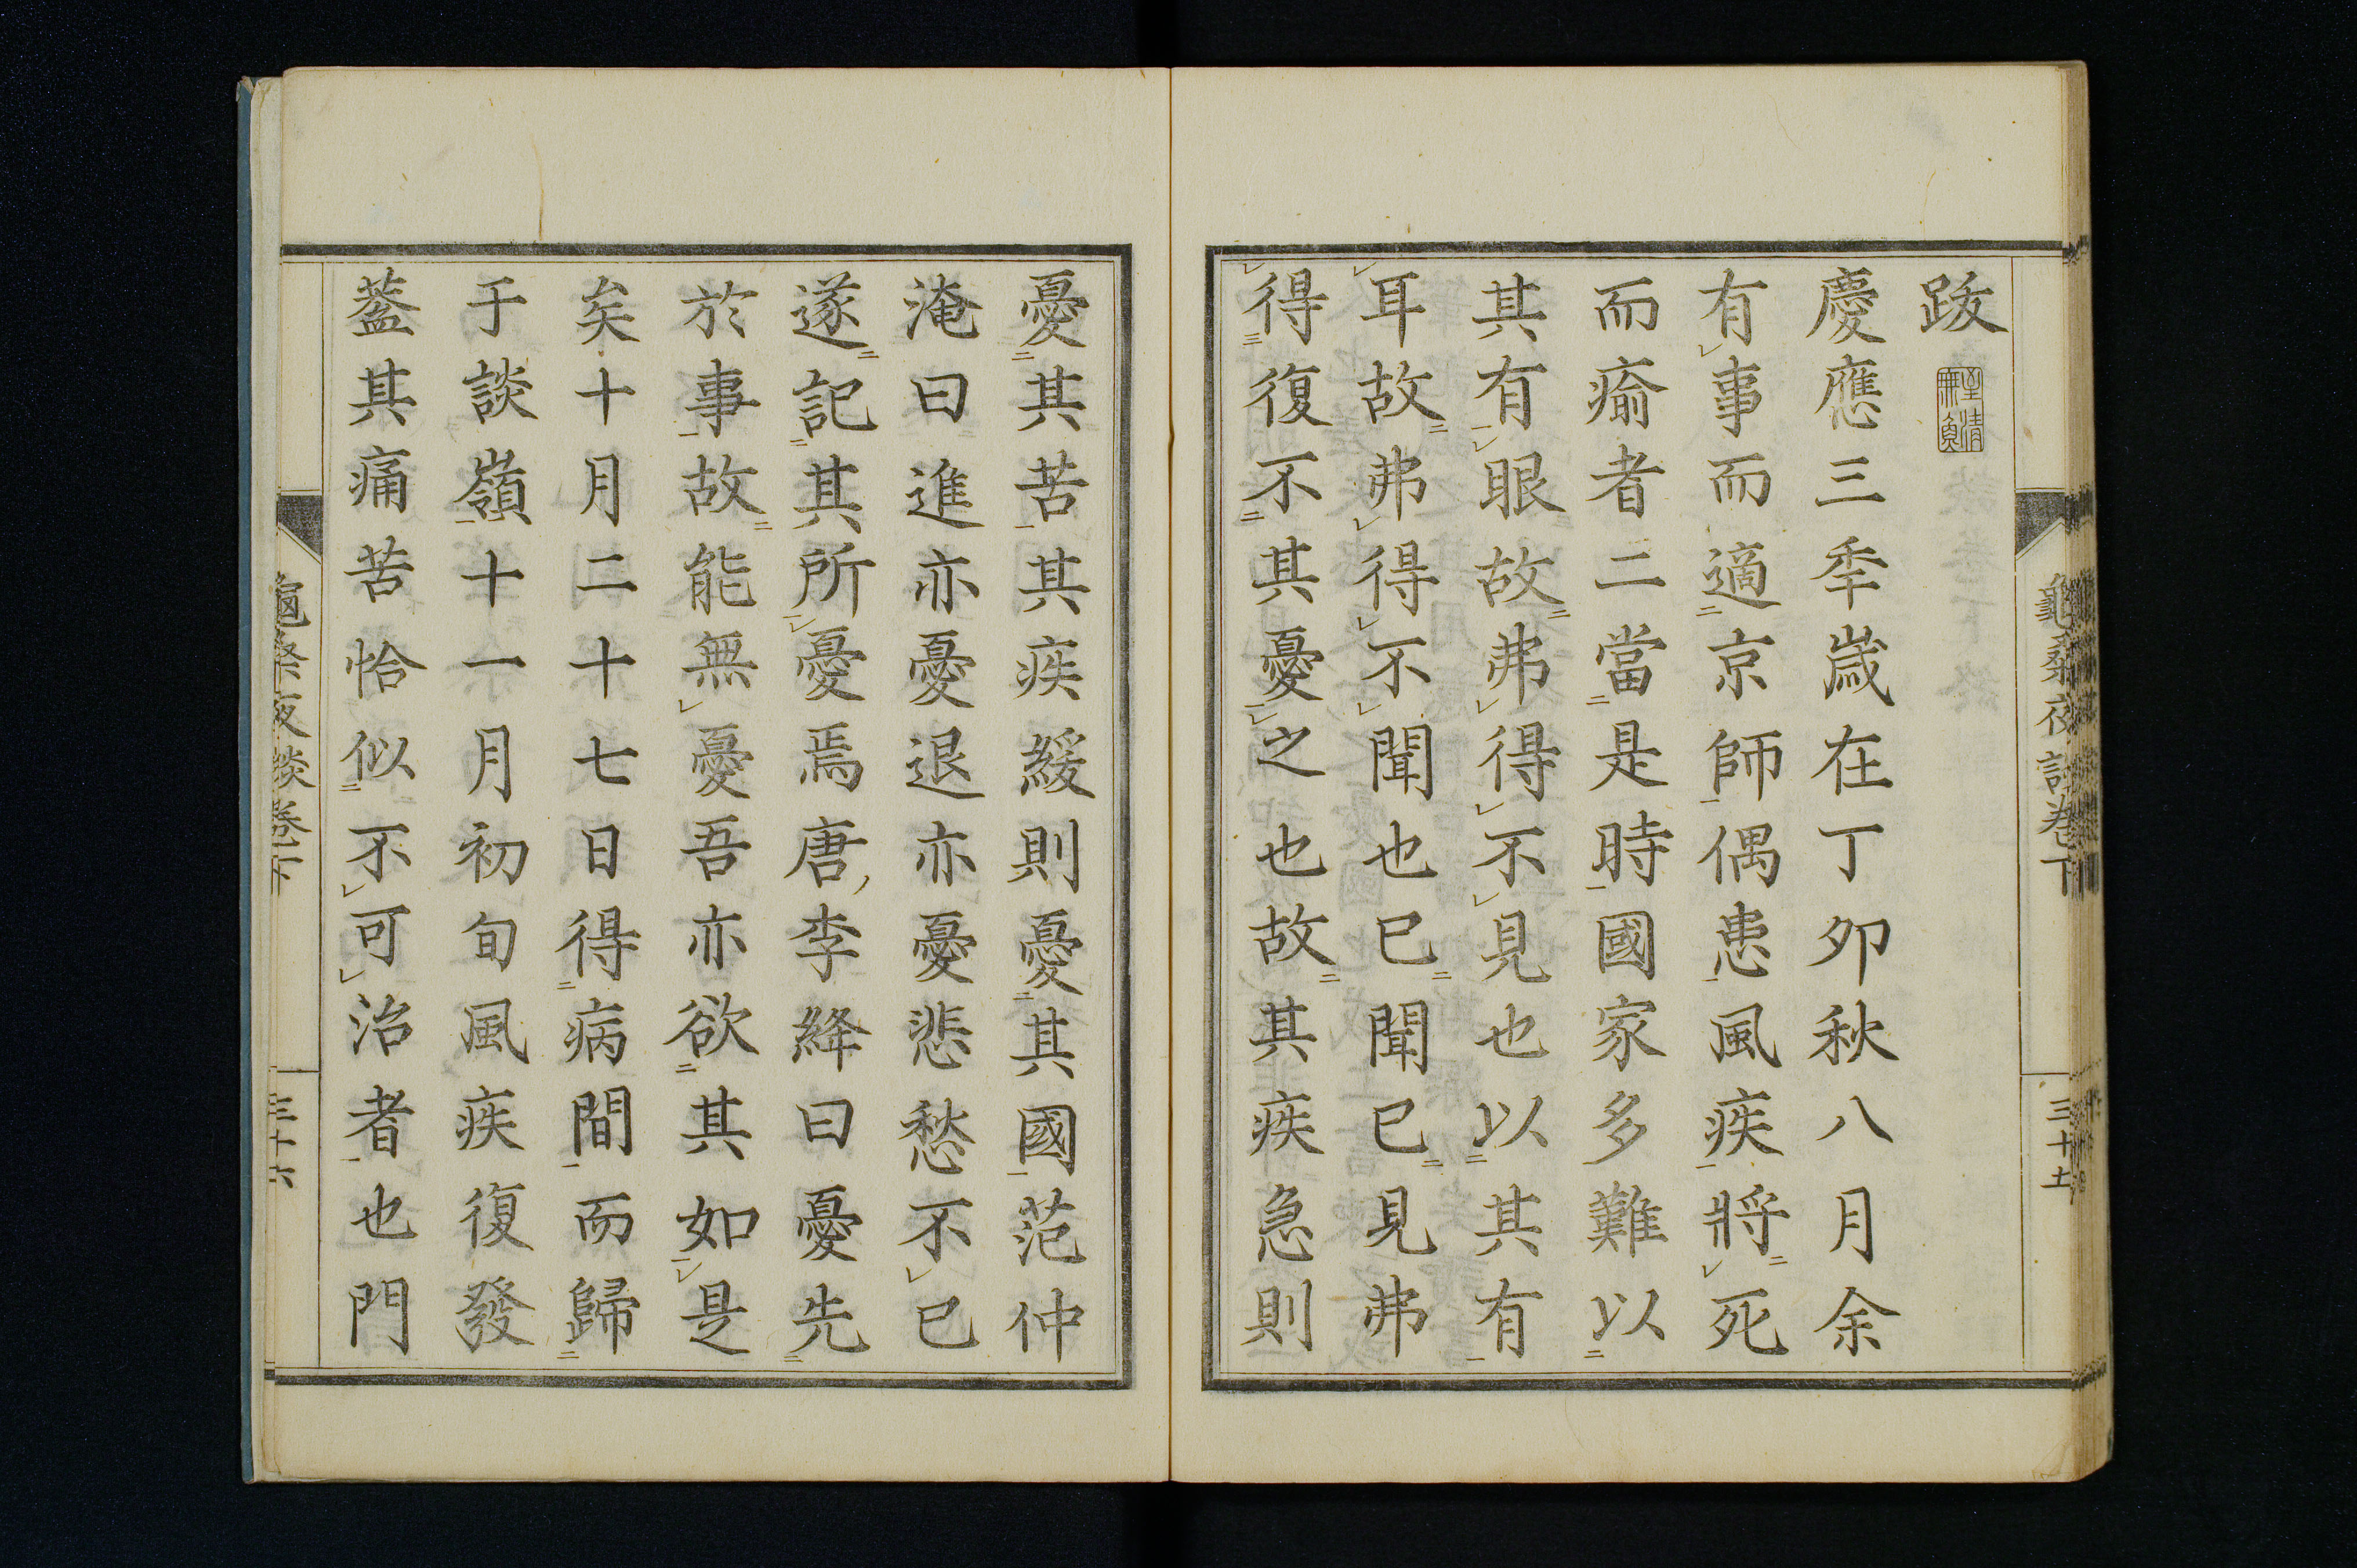 跋
至清無魚
慶應三秊歲在丁卯秋八月余
有事而適京師偶患風疾將死
而瘉者二當是時國家多難以
其有眼故弗得不見也以其有
耳故弗得不聞也已聞已見弗
得復不其憂之也故其疾急則
憂其苦其疾緩則憂其國范仲
淹曰進亦憂退亦憂悲愁不已
遂記其所憂焉唐李絳曰憂先
於事故能無憂吾亦欲其如是
矣十月二十七日得病間而歸
于談嶺十一月初旬風疾復發
蓋其痛苦恰似不可治者也門
夜談卷下
三十五
夜談卷下
三十六